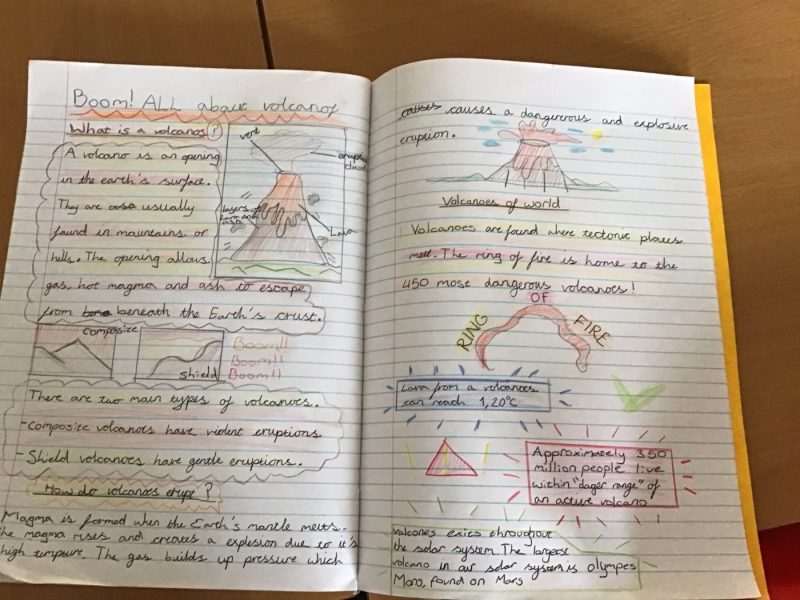 Boom! All about volcanos
What is a volcanos?
A volcano is an opening
in the earth's surface.
They are usually
found in mountains or
hills. The opening allows
gas, hot magma and ash to escape
from beneath the Earth's crust.
vent
layers of
Lava
composite
shield
Boom!!
Boom!!
Boom!!
There are two main types of volcanoes.
-Composite volcanoes have violent eruptions.
- Shield volcanoes have gentle eruptions.
How do volcanoes erupt?
Magma is formed when the Earth's mantle melts.
the magma rises and creates a explosion due to it's
high tempture. The gas builds up pressure which
causes causes a dangerous and explosive
eruption.
Volcanoes of world
Volcanoes are found where tectonic plates
meet. The ring of fire is home to the
450 most dangerous volcanoes!
RING OF FIRE
Lava from a volcanoes
can reach 1,20°C
Approximately 350
million people live
within "dager range" of
an active volcano
volcanoes exics throughout
the solar system. The largest
volcano in our solar system is olympes
Mons, found on Mars